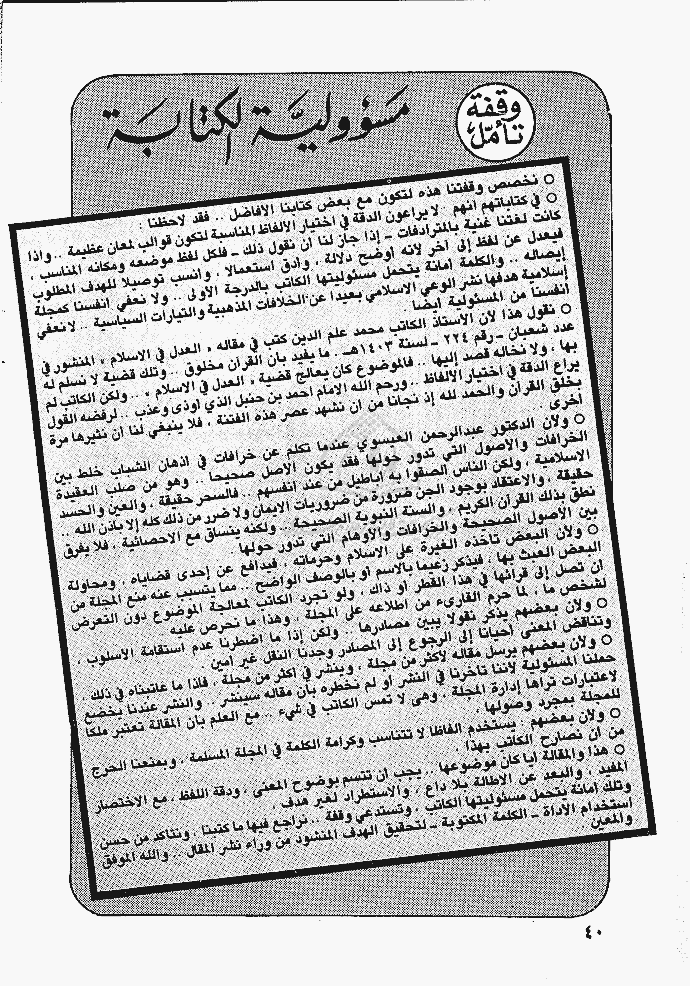 وقفة
تأمل
مسؤولية الكتابة
○ نخصص وقفتنا هذه لتكون مع بعض كتابنا الأفاضل .. فقد لاحظنا :
○ في كتاباتهم أنهم لا يراعون الدقة في اختيار الألفاظ المناسبة لتكون قوالب لمعان عظيمة .. وإذا
كانت لغتنا غنية بالمترادفات – إذا جاز لنا أن نقول ذلك – فلكل لفظ موضعه ومكانه المناسب ،
فيعدل عن لفظ إلى آخر لأنه أوضح دلالة ، وأدق استعمالا ، وأنسب توصيلا للهدف المطلوب
إيصاله .. والكلمة أمانة يتحمل مسئوليتها الكاتب بالدرجة الأولى .. ولا نعفي أنفسنا كمجلة
إسلامية هدفها نشر الوعي الاسلامي بعيدا عن الخلافات المذهبية والتيارات السياسية .. لا نعفي
أنفسنا من المسئولية أيضا .
○ نقول هذا لأن الأستاذ الكاتب محمد علم الدين كتب في مقاله « العدل في الاسلام » المنشور في
عدد شعبان – رقم ٢٢٤ – لسنة ١٤٠٣هـ . ما يفيد بأن القرآن مخلوق .. وتلك قضية لا نسلم له
بها ، ولا نخاله قصد إليها .. فالموضوع كان يعالج قضية « العدل في الاسلام » .. ولكن الكاتب لم
يراع الدقة في اختيار الألفاظ .. ورحم الله الامام أحمد بن حنبل الذي أوذي وعذب .. لرفضه القول
بخلق القرآن والحمد لله إذ نجانا من أن نشهد عصر هذه الفتنة ، فلا ينبغي لنا أن نثيرها مرة
أخرى .
○ ولأن الدكتور عبدالرحمن العيسوي عندما تكلم عن خرافات في أذهان الشباب خلط بين
الخرافات والأصول التي تدور حولها فقد يكون الأصل صحيحا .. وهو من صلب العقيدة
الاسلامية ، ولكن الناس ألصقوا به أباطيل من عند أنفسهم .. فالسحر حقيقة ، والعين والحسد
حقيقة ، والاعتقاد بوجود الجن ضرورة من ضروريات الايمان ولا ضرر من ذلك كله إلا بإذن الله ..
نطق بذلك القرآن الكريم ، والسنة النبوية الصحيحة .. ولكنه يتساق مع الاحصائية ، فلا يفرق
بين الأصول الصحيحة والخرافات والأوهام التي تدور حولها .
○ ولأن البعض تأخذه الغيرة على الاسلام وحرماته ، فيدافع عن إحدى قضاياه ، ومحاولة
البعض العبث بها ، فيذكر زعيما بالاسم أو بالوصف الواضح .. مما يتسبب عنه منع المجلة من
أن تصل إلى قرائها في هذا القطر أو ذاك ، ولو تجرد الكاتب لمعالجة الموضوع دون التعرض
لشخص ما ، لما حرم القارىء من اطلاعه على المجلة ، وهذا ما نحرص عليه
○ ولأن بعضهم يذكر نقولا يبين مصادرها . ولكن إذا ما اضطرنا عدم استقامة الأسلوب ،
وتناقض المعنى أحيانا إلى الرجوع إلى المصادر وجدنا النقل غير أمين .
○ ولأن بعضهم يرسل مقاله لأكثر من مجلة ، وينشر في أكثر من مجلة ، فإذا ما عاتبناه في ذلك
حملنا المسئولية لأننا تأخرنا في النشر أو لم نخطره بأن مقاله سينشر .. والنشر عندنا يخضع
لاعتبارات تراها إدارة المجلة ، وهي لا تمس الكاتب في شيء .. مع العلم بأن المقالة تعتبر ملكا
للمجلة بمجرد وصولها .
○ ولأن بعضهم : يستخدم ألفاظا لا تتناسب وكرامة الكلمة في المجلة المسلمة ، ويمنعنا الحرج
من أن نصارح الكاتب بهذا .
○ هذا والمقالة أيا كان موضوعها .. يجب أن تتسم بوضوح المعنى ، ودقة اللفظ ، مع الاختصار
المفيد ، والبعد عن الاطالة بلا داع ، والاستطراد لغير هدف .
وتلك أمانة يتحمل مسئوليتها الكاتب ، وتستدعي وقفة .. نراجع فيها ما كتبنا . ونتأكد من حسن
استخدام الأداة – الكلمة المكتوبة – لتحقيق الهدف المنشود من وراء نشر المقال .. والله الموفق
والمعين
٤٠